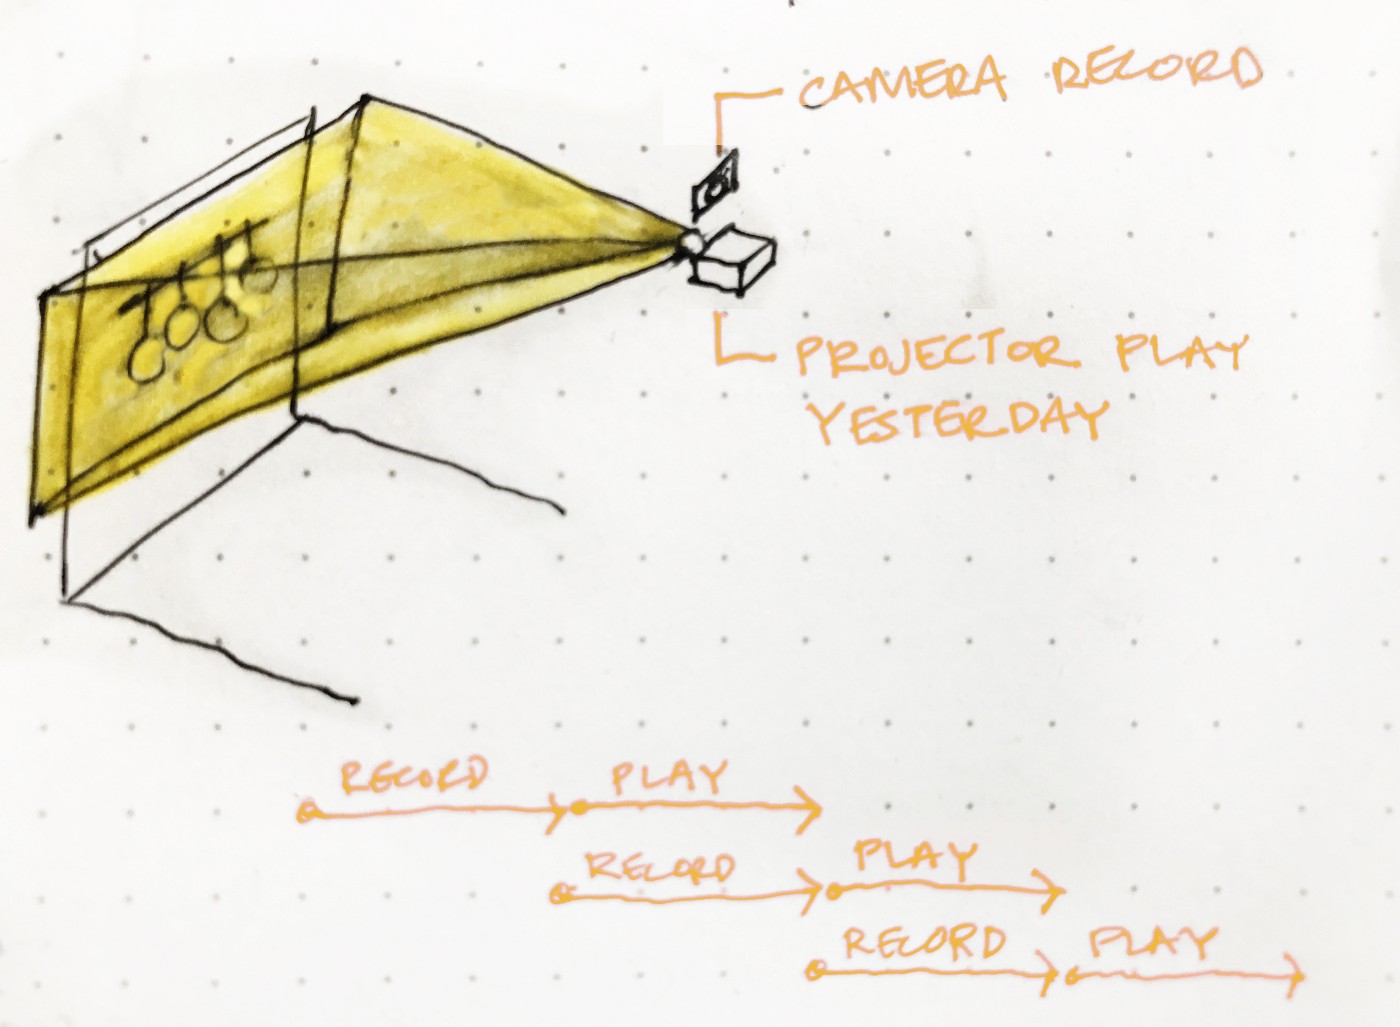 CAMERA RECORD
PROJECTOR PLAY
YESTERDAY
RECORD PLAY
RECORD PLAY
RECORD PLAY